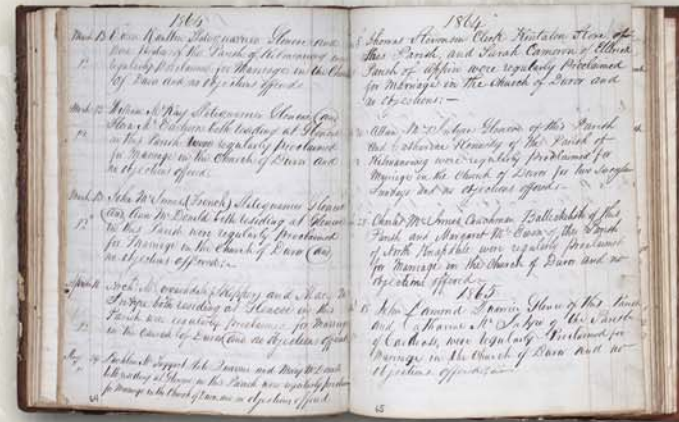 1864
March 13 Ewen Rankin Slatequarrier Glencoe and
of the Parish of Kilmonivaig were
regularly Proclaimed for Marriage in the Church
of Duror and no Objections offered
March 13 William McKay Slatequarrier Glencoe (and
both residing at Glencoe
in this Parish were regularly proclaimed
for Marriage in the Church of Duror and
no objections offered.
March 13 John McInnes (French) Slatequarrier Glencoe
(and) Ann McDonald both residing at Glencoe
in this Parish were regularly Proclaimed
for Marriage in the Church of Duror (and
no objections offered:-
April and Mary Mc
Intyre both residing at Glencoe in this
Parish was regularly proclaimed for Marriage
in the Church of Duror and no Objections offered
May 14 and Mary McDonald
both residing at Glencoe in this Parish were regularly proclaimed
for Marriage in the Church of Duror and no objections offered
64
1864
Thomas Stevenson Clerk Store of
this Parish, and Sarah Cameron of
Parish of Appin were regularly Proclaimed
for Marriage in the Church of Duror and
no objections:-
Allan McIntyre Glencoe of this Parish
and Catherine Kennedy of the Parish of
Kilmonivaig were regularly Proclaimed for
Marriage in the Church of Duror for two
Sundays but no objections offered.
McInnes Ballachulish of this
Parish and Margaret McEwen of the Parish
of North Knapdale were regularly proclaimed
for Marriage in the Church of Duror and no
objections offered.
1865
John Lamond Glencoe of this Parish
and Catharine McIntyre of the Parish
of were regularly Proclaimed for
Marriage in the Church of Duror and no
objections offered:-
65